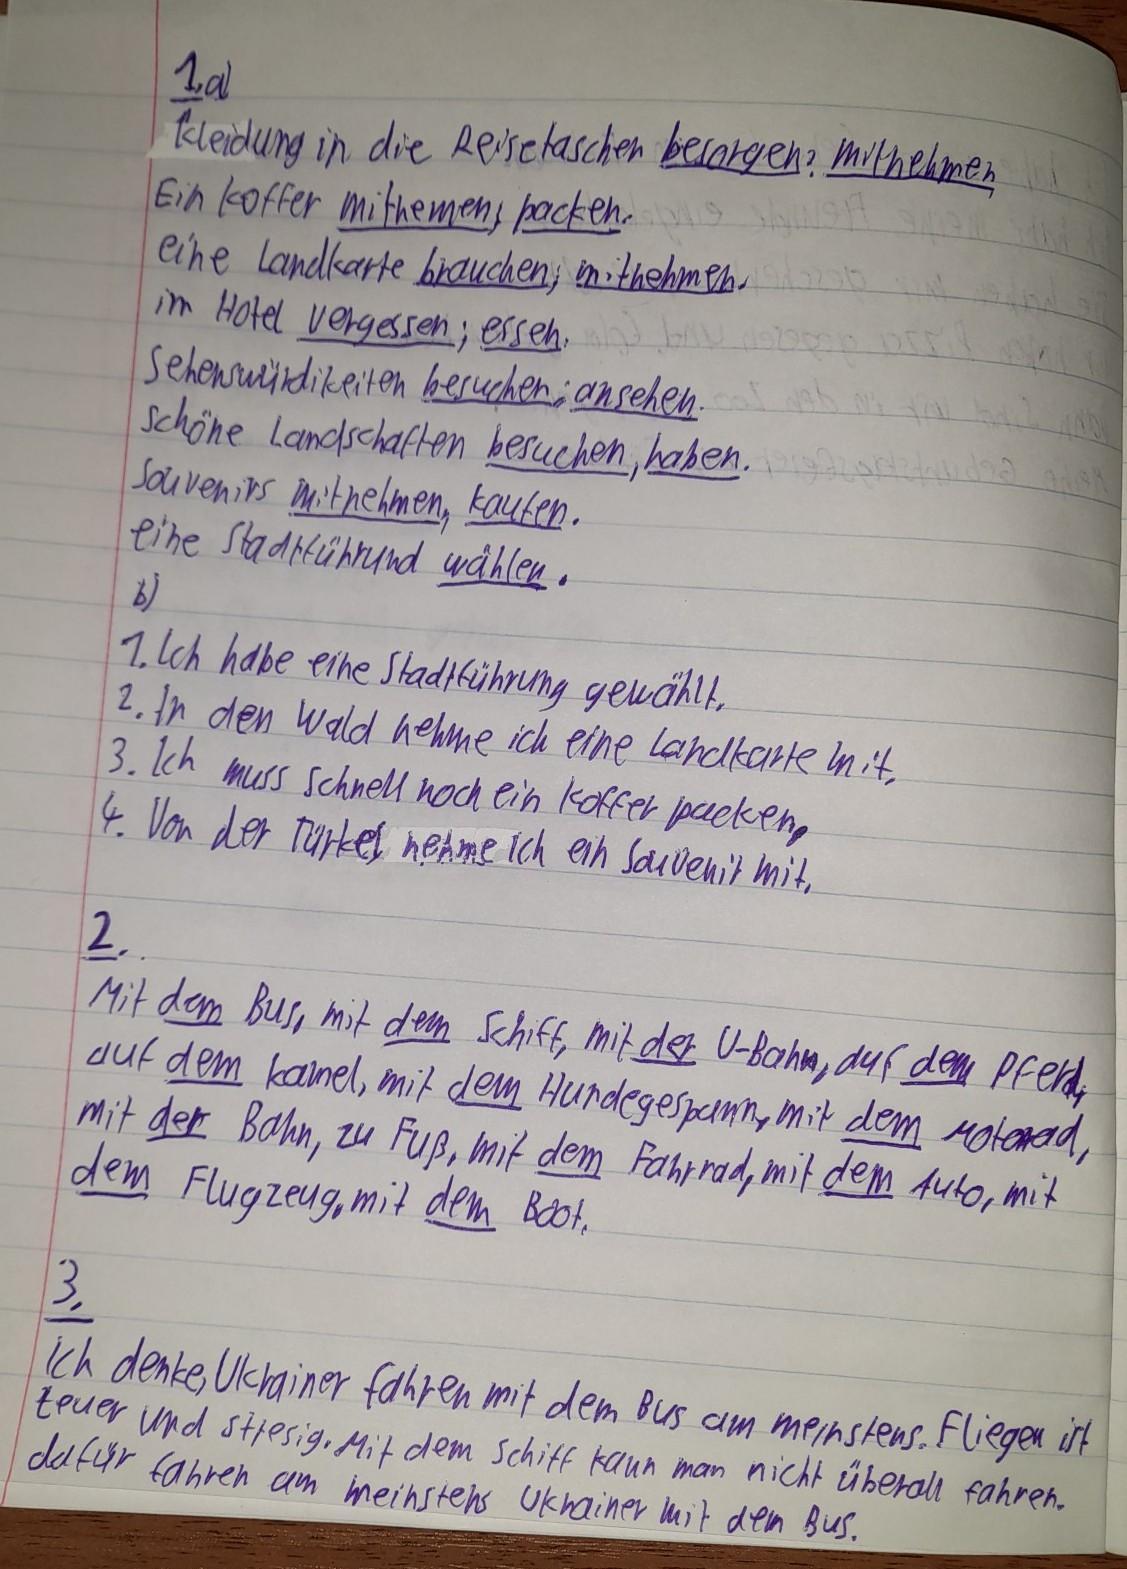 1.a)
Kleidung in die Reisetaschen besorgen; mitnehmen
Ein Koffer mithemen; packen.
eine Landkarte brauchen; mitnehmen.
im Hotel vergessen; essen.
Sehenswürdikeiten besuchen; ansehen.
schöne Landschaften besuchen, haben.
Souvenirs mitnehmen, kaufen.
eine Stadtführund wählen.
b)
1. Ich habe eine Stadtführung gewählt.
2. In den Wald nehme ich eine Landkarte mit.
3. Ich muss schnell noch ein Koffer packen.
4. Von der Türkei nehme ich ein Souvenir mit.
2.
Mit dem Bus, mit dem Schiff, mit der U-Bahn, auf dem Pferd,
auf dem Kamel, mit dem Hundegespann, mit dem Motorrad,
mit der Bahn, zu Fuß, mit dem Fahrrad, mit dem Auto, mit
dem Flugzeug, mit dem Boot.
3.
Ich denke, Ukrainer fahren mit dem Bus am meinstens. Fliegen ist
teuer und stresig. Mit dem Schiff kann man nicht überall fahren.
dafür fahren am meinstens Ukrainer mit dem Bus.